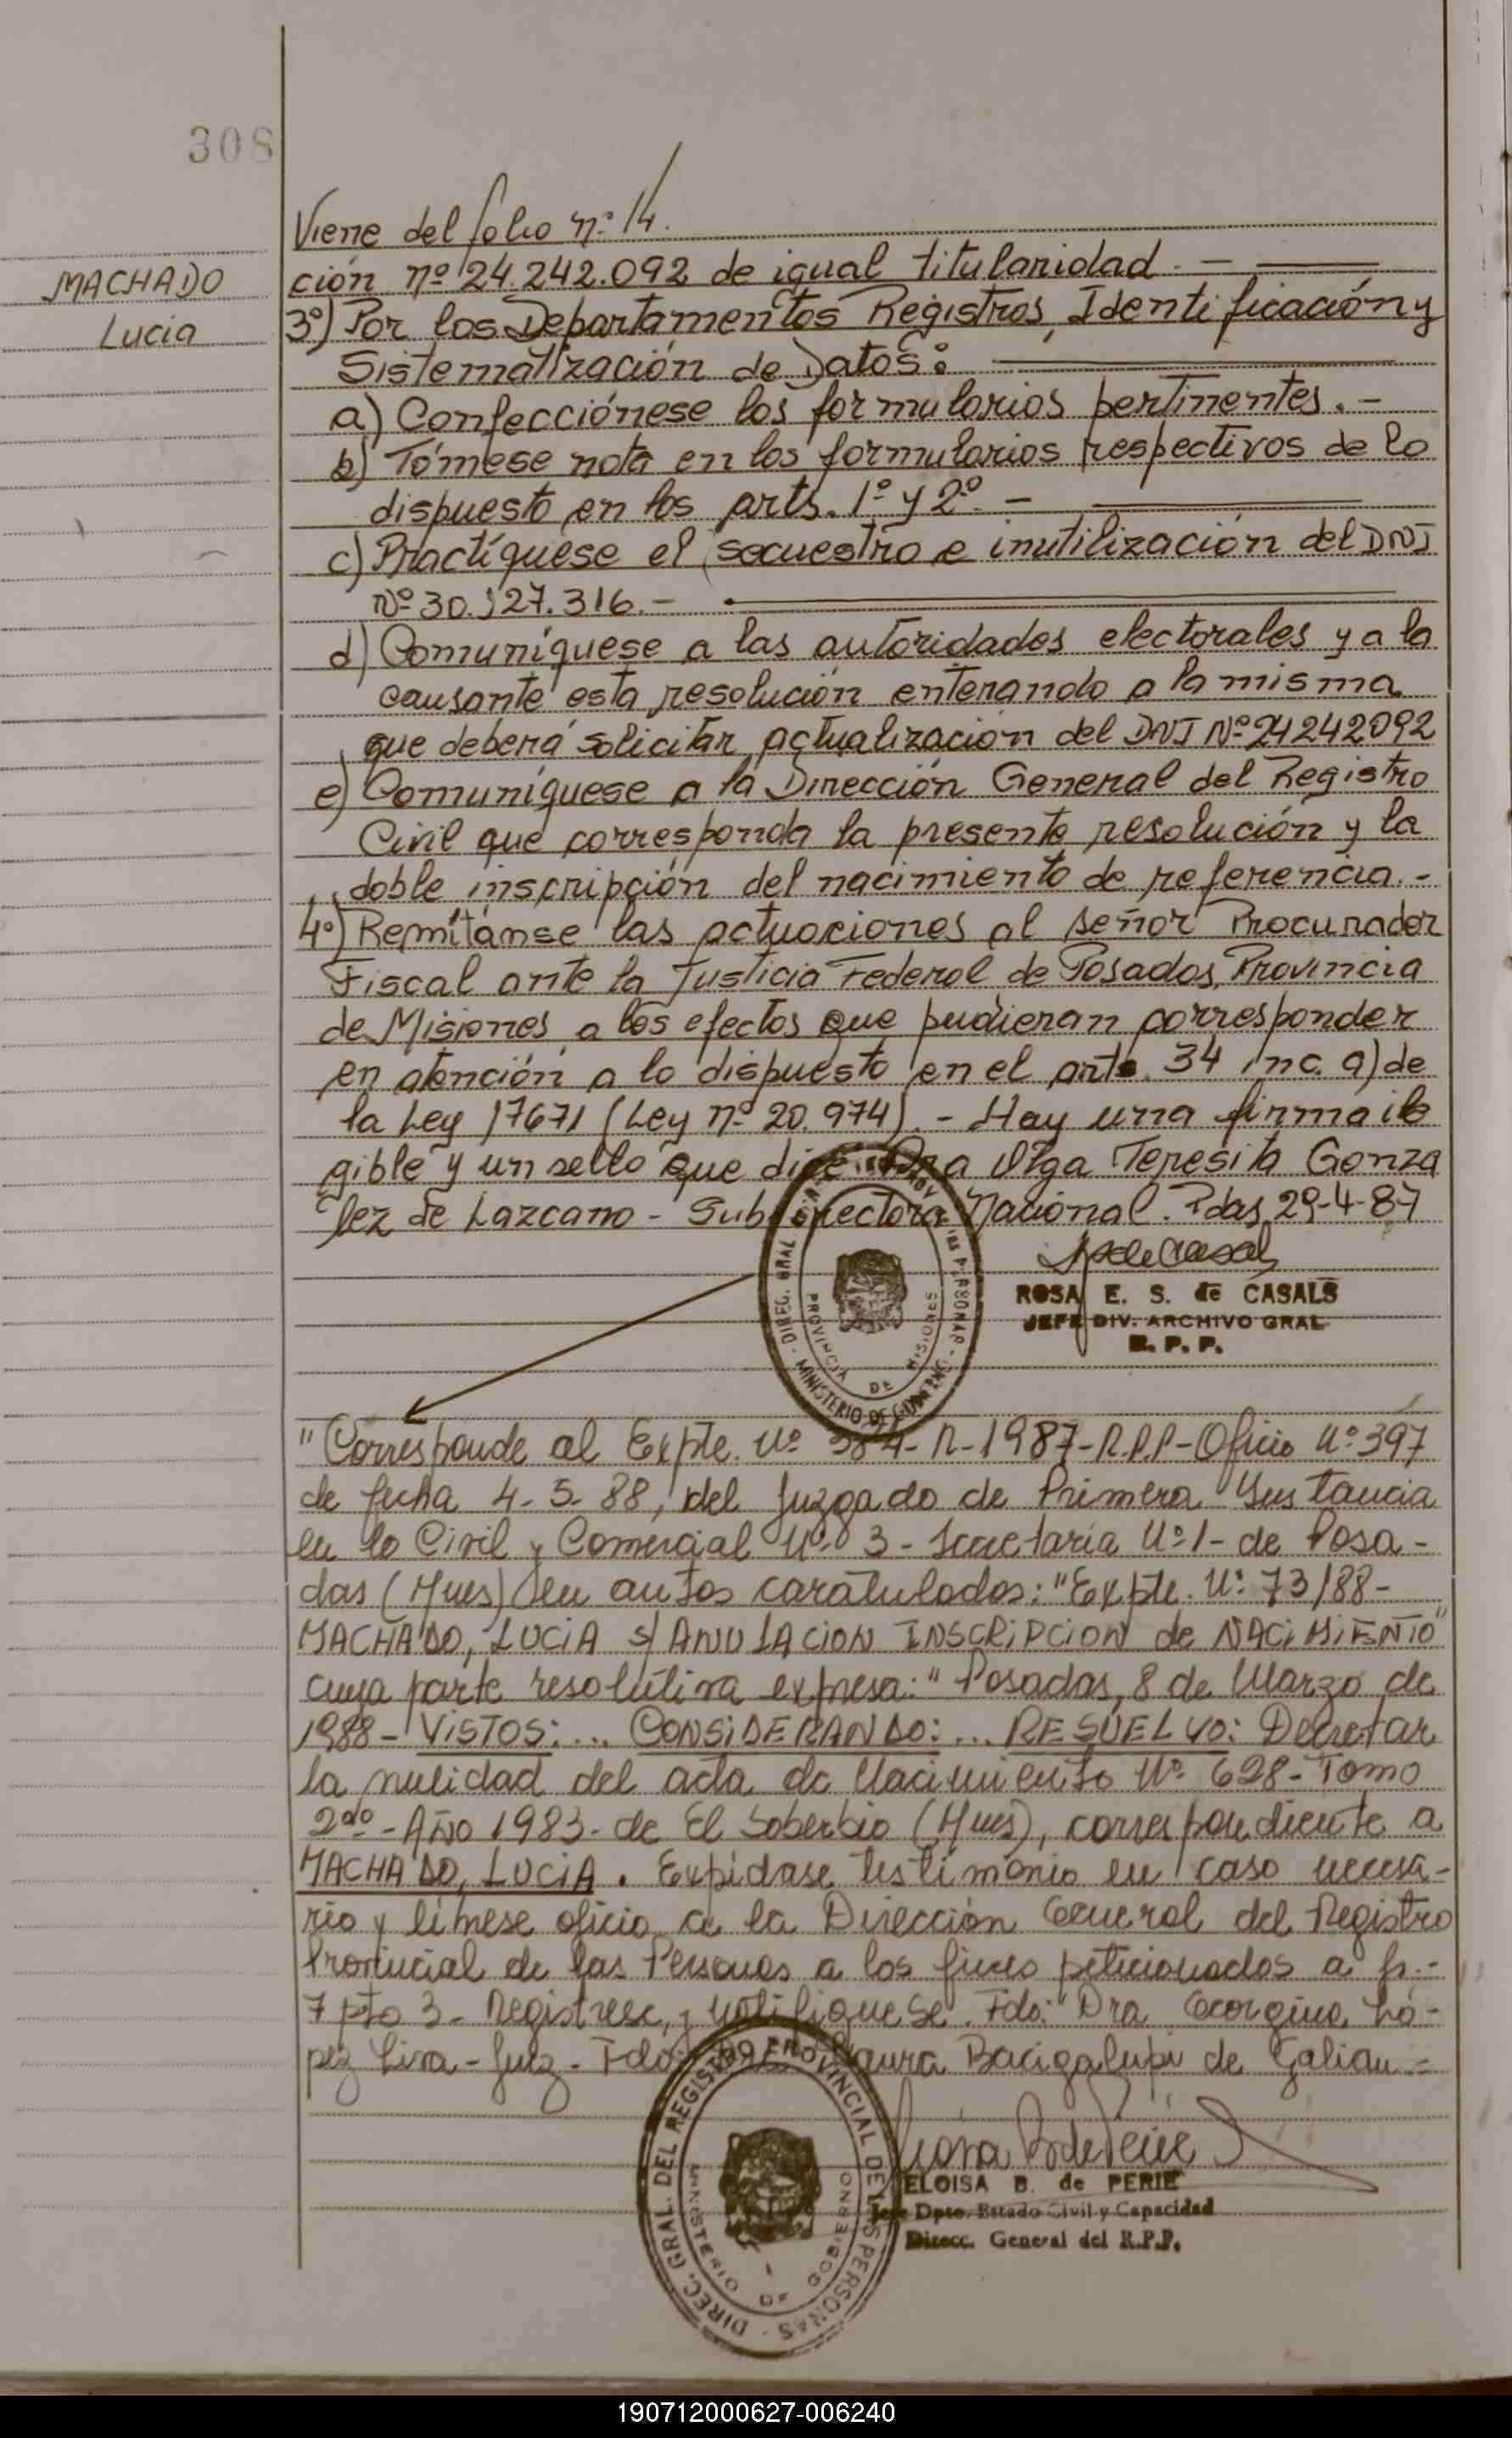 308
MACHADO
Lucia
Viene del folio nº 14.
ción nº 24.242.092 de igual titularidad. —
3º) Por los Departamentos Registros, Identificación y
Sistematización de Datos:
a) Confecciónese los formularios pertinentes. -
b) Tómese nota en los formularios respectivos de lo
dispuesto en los arts. 1º y 2º. -
c) Practíquese el secuestro e inutilización del DNI
Nº 30.127.316. -
d) Comuníquese a las autoridades electorales y a la
causante esta resolución enterando a la misma
que deberá solicitar actualización del DNI Nº 24242092
e) Comuníquese a la Dirección General del Registro
Civil que corresponda la presente resolución y la
doble inscripción del nacimiento de referencia. -
4º) Remítanse las actuaciones al señor Procurador
Fiscal ante la Justicia Federal de Posadas, Provincia
de Misiones, a los efectos que pudieran corresponder
en atención a lo dispuesto en el art. 34 inc. a) de
la Ley 17671 (Ley nº 20.974). - Hay una firma ile
gible y un sello que dice Dra Olga Teresita Gonza
lez de Lazcano - Subdirectora Nacional. Pdas, 29-4-87
ROSA E. S. de CASALS
JEFE DIV. ARCHIVO GRAL
R. P. P.
PROVINCIA DE MISIONES
"Corresponde al Expte. Nº 384-R-1987-R.P.P-Oficio Nº 397
de fecha 4-5-88, del Juzgado de Primera Instancia
en lo Civil y Comercial Nº 3 - Secretaría Nº 1 - de Posa-
das (Mnes) en autos caratulados: "Expte. Nº 73/88-
MACHADO, LUCIA s/ ANULACION INSCRIPCION de NACIMIENTO"
cuya parte resolutiva expresa: "Posadas, 8 de Marzo de
1988 - VISTOS: ... CONSIDERANDO: ... RESUELVO: Decretar
la nulidad del acta de Nacimiento Nº 628 - Tomo
2do - Año 1983 - de El Soberbio (Mnes), correspondiente a
MACHADO, LUCIA. Expídase testimonio en caso necesa-
rio y líbrese oficio a la Dirección General del Registro
Provincial de las Personas a los fines peticionados a fs.-
7 pto 3 - Regístrese, y notifíquese. Fdo: Dra Georgina Ló-
pez Liva - Juez - Fdo: Laura Bacigalupi de Galian -
DIREC. GRAL. DEL REGISTRO PROVINCIAL DE LAS PERSONAS
MINISTERIO DE GOBIERNO
ELOISA B. de PERIE
Jefe Dpto. Estado Civil y Capacidad
Direcc. General del R.P.P.
190712000627-006240